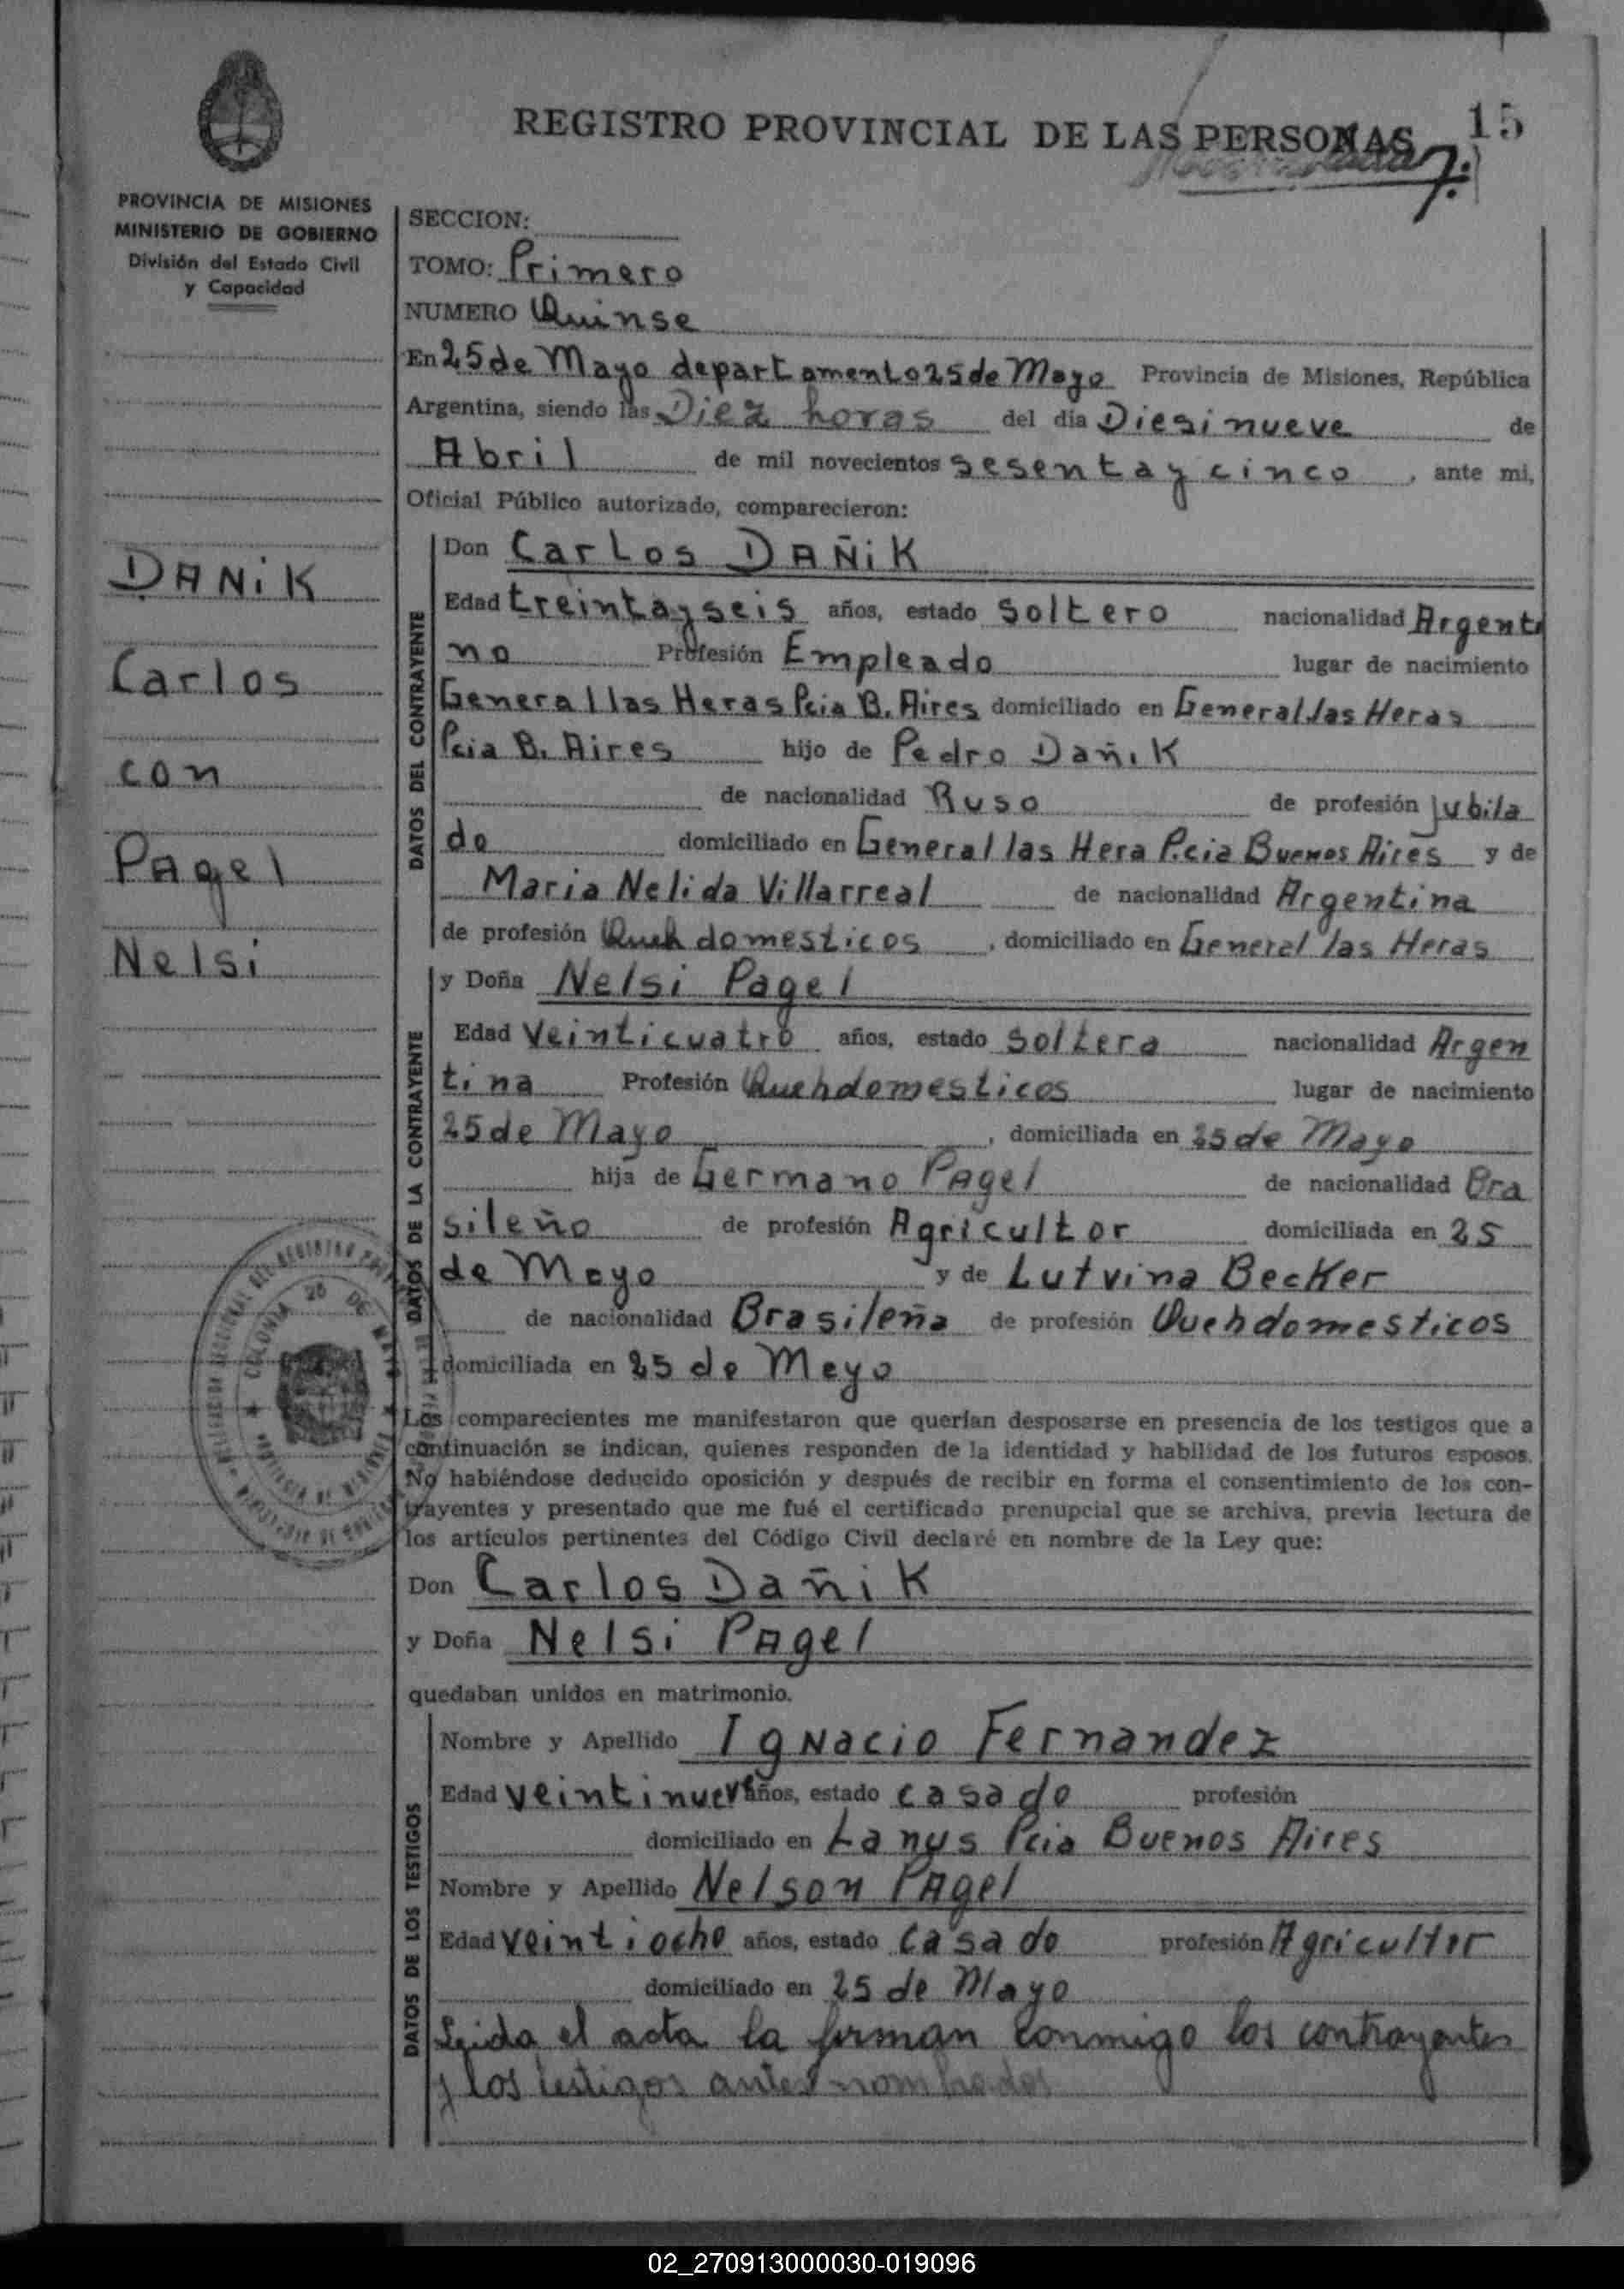 REGISTRO PROVINCIAL DE LAS PERSONAS
15
PROVINCIA DE MISIONES
MINISTERIO DE GOBIERNO
División del Estado Civil
y Capacidad
DANiK
Carlos
con
PAgel
Nelsi
SECCION:
TOMO: Primero
NUMERO Quinse
En 25 de Mayo departamento 25 de Mayo Provincia de Misiones, República
Argentina, siendo las Diez horas del día Diesinueve de
Abril de mil novecientos sesenta y cinco, ante mi,
Oficial Público autorizado, comparecieron:
DATOS DEL CONTRAYENTE
Don Carlos DAÑiK
Edad treinta y seis años, estado Soltero nacionalidad Argenti
no Profesión Empleado lugar de nacimiento
General las Heras Pcia B. Aires domiciliado en General las Heras
Pcia B. Aires hijo de Pedro Dañik
de nacionalidad Ruso de profesión jubila
do domiciliado en General las Hera P.cia Buenos Aires y de
Maria Nelida Villarreal de nacionalidad Argentina
de profesión Queh domesticos, domiciliado en General las Heras
DATOS DE LA CONTRAYENTE
y Doña Nelsi Pagel
Edad Veinticuatro años, estado Soltera nacionalidad Argen
tina Profesión Quehdomesticos lugar de nacimiento
25 de Mayo, domiciliada en 25 de Mayo
hija de Germano PAgel de nacionalidad Bra
sileño de profesión Agricultor domiciliada en 25
de Mayo y de Lutvina Becker
de nacionalidad Brasileña de profesión Quehdomesticos
domiciliada en 25 de Mayo
COLONIA 25 DE MAYO
Los comparecientes me manifestaron que querían desposarse en presencia de los testigos que a
continuación se indican, quienes responden de la identidad y habilidad de los futuros esposos.
No habiéndose deducido oposición y después de recibir en forma el consentimiento de los con-
trayentes y presentado que me fué el certificado prenupcial que se archiva, previa lectura de
los artículos pertinentes del Código Civil declaré en nombre de la Ley que:
Don Carlos Dañik
y Doña Nelsi PAgel
quedaban unidos en matrimonio.
DATOS DE LOS TESTIGOS
Nombre y Apellido Ignacio Fernandez
Edad veintinueve años, estado casado profesión
domiciliado en Lanus Pcia Buenos Aires
Nombre y Apellido Nelson PAgel
Edad veintiocho años, estado casado profesión Agricultor
domiciliado en 25 de Mayo
Leida el acta la firman conmigo los contrayentes
y los testigos antes nombrados
02_270913000030-019096